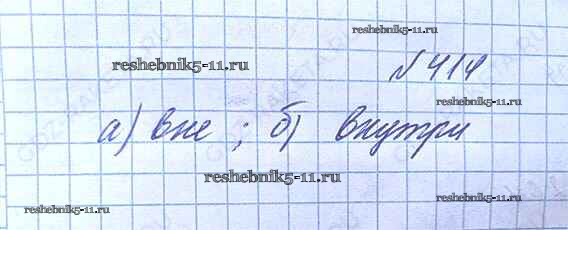 reshebnik5-11.ru
reshebnik5-11.ru
№ 414
reshebnik5-11.ru
а) вне ; б) внутри
reshebnik5-11.ru
reshebnik5-11.ru
reshebnik5-11.ru